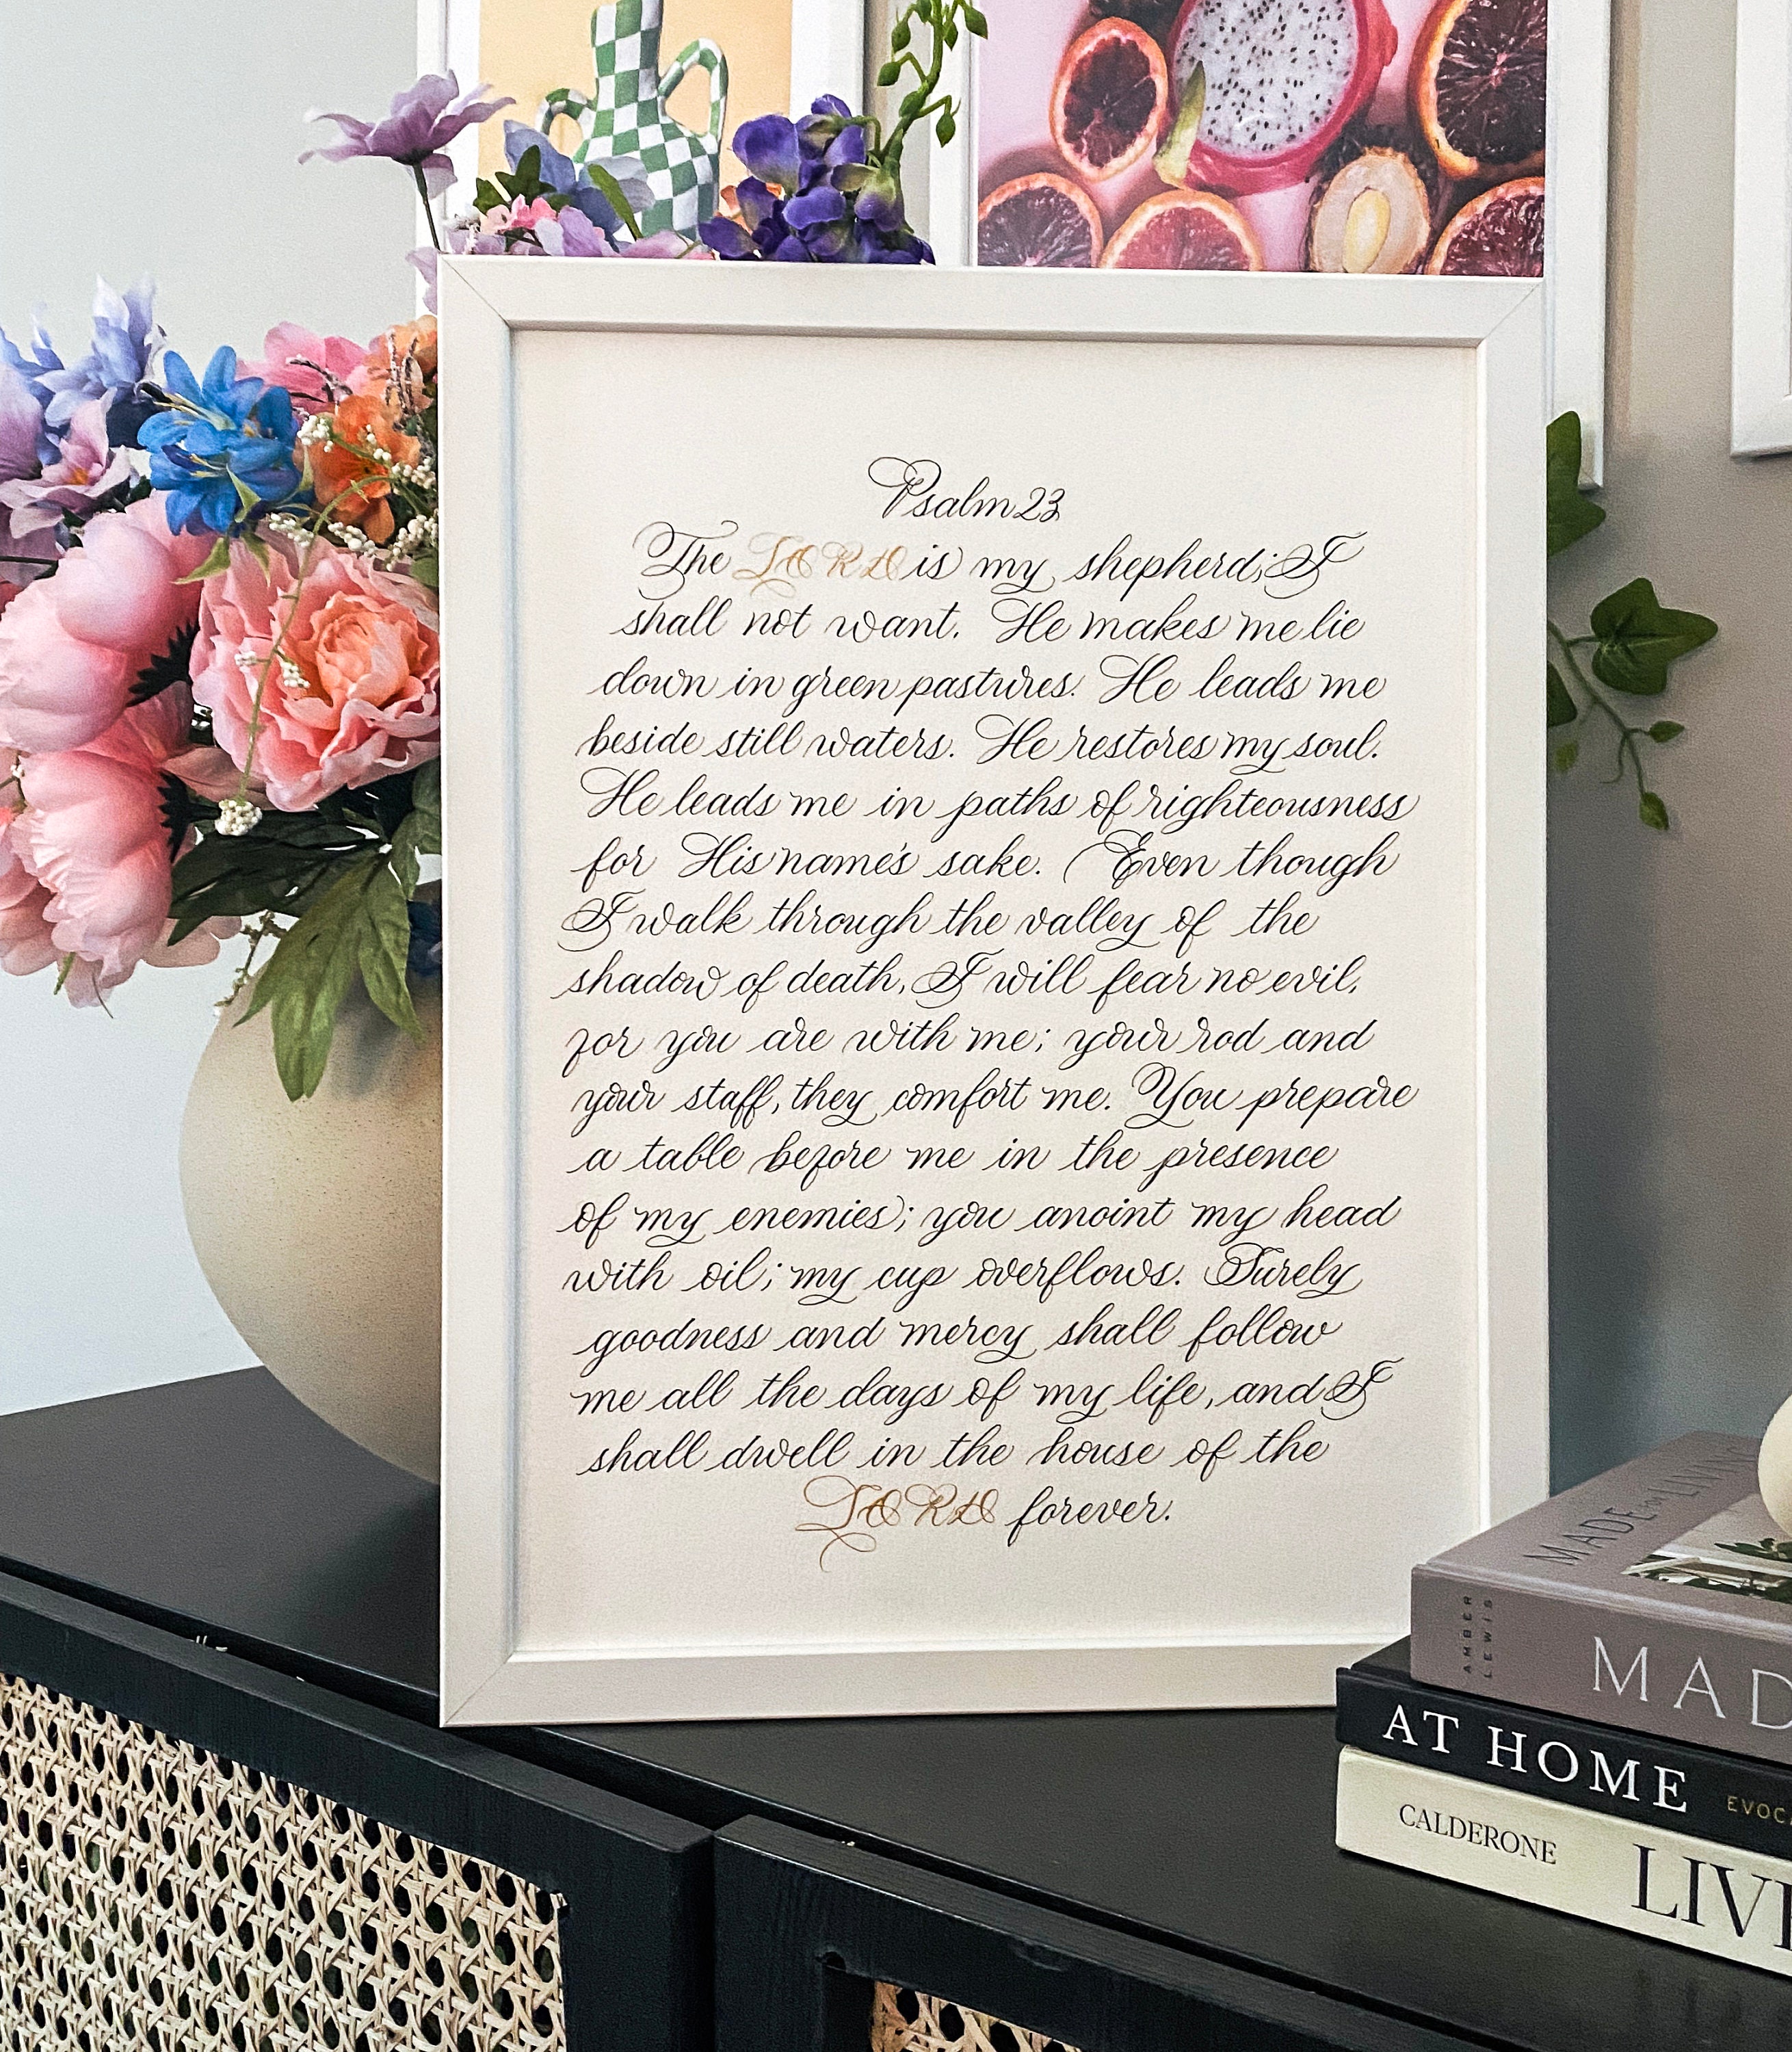 Psalm 23
The LORD is my shepherd; I
shall not want. He makes me lie
down in green pastures. He leads me
beside still waters. He restores my soul.
He leads me in paths of righteousness
for His name's sake. Even though
I walk through the valley of the
shadow of death, I will fear no evil,
for you are with me; your rod and
your staff, they comfort me. You prepare
a table before me in the presence
of my enemies; you anoint my head
with oil; my cup overflows. Surely
goodness and mercy shall follow
me all the days of my life, and I
shall dwell in the house of the
LORD forever.
MADE FOR LIVIN
AMBER
LEWIS
MAD
AT HOME EVOC
CALDERONE LIVI